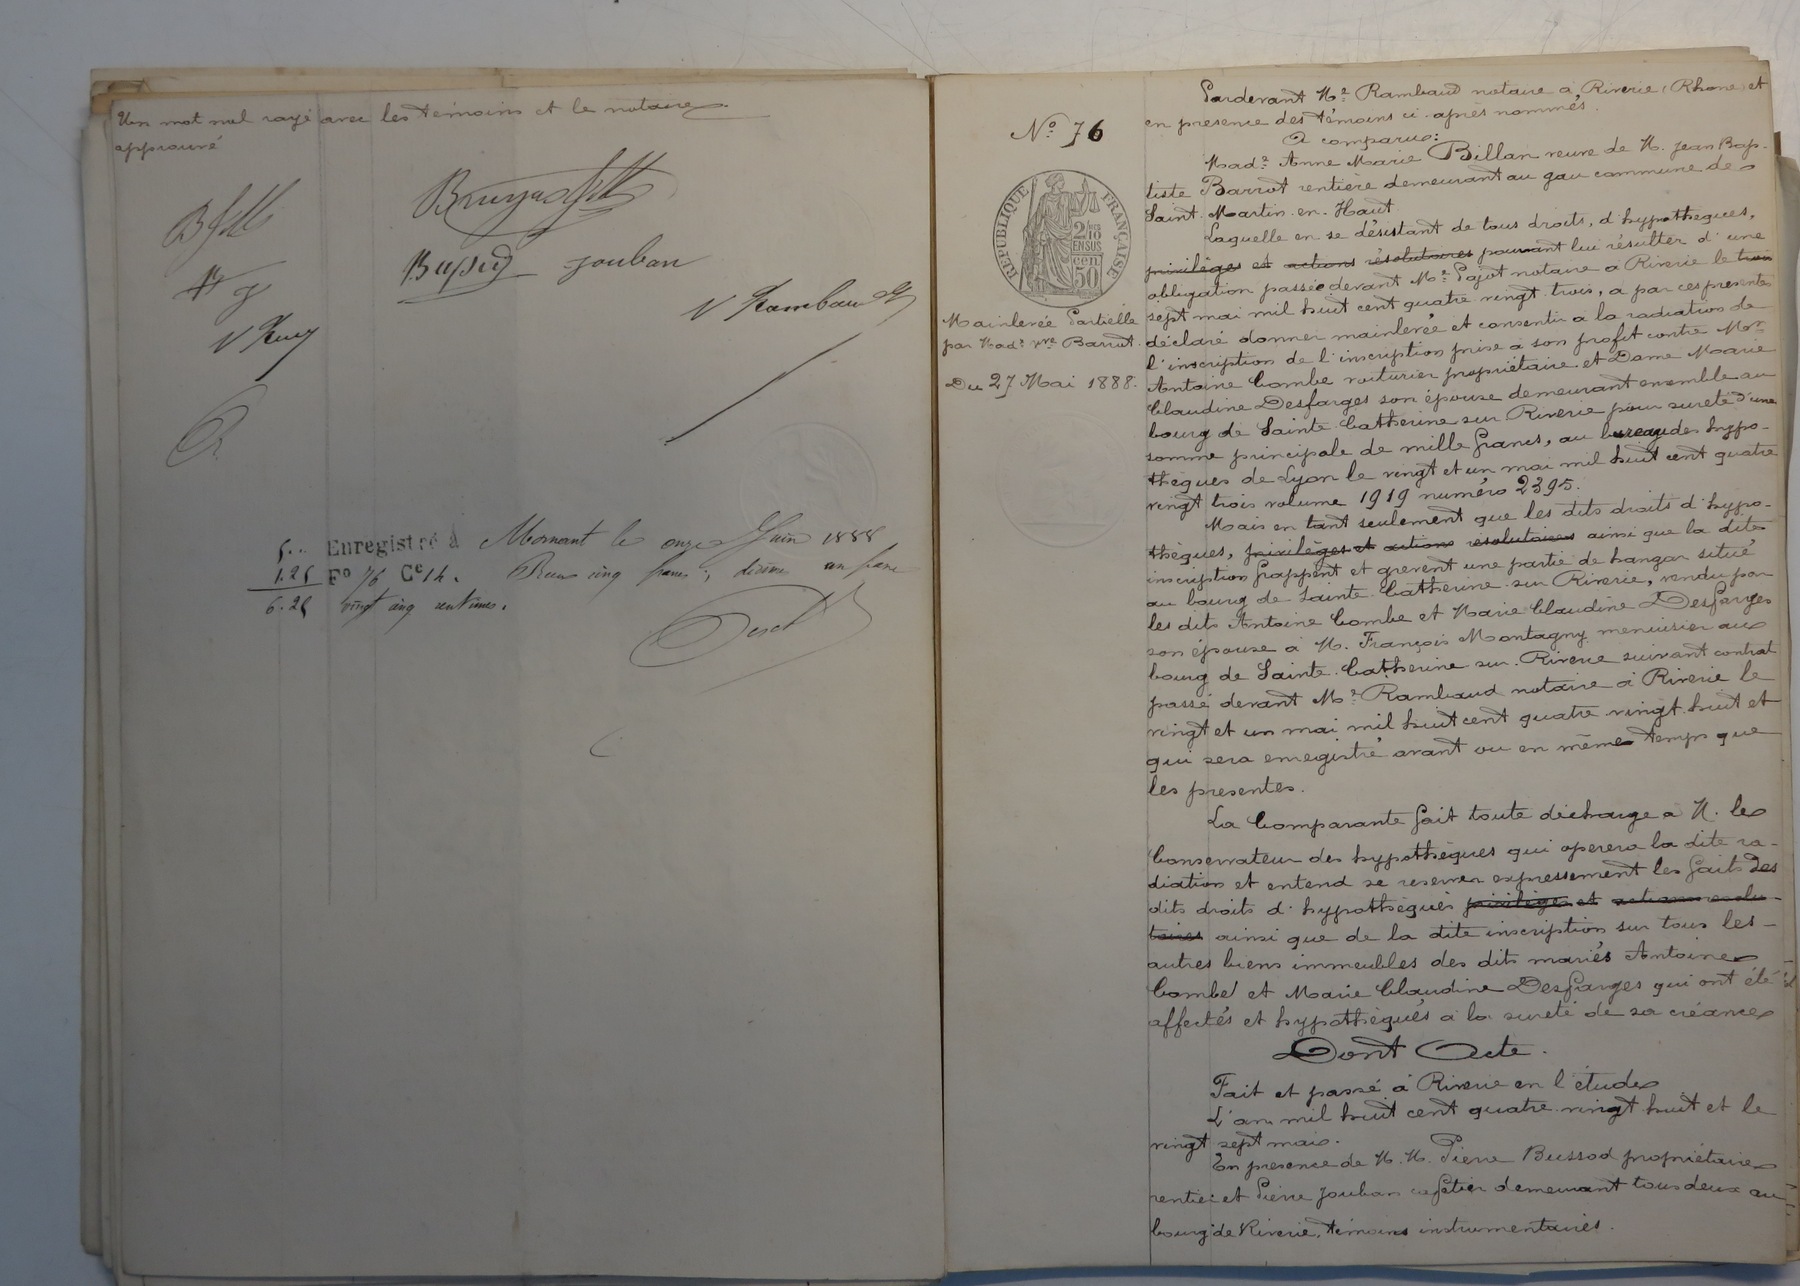 Un mot nul rayé avec les témoins et le notaire
approuvé
Bussod Jouban
V Rambaud
5..
1.25
6.25
Enregistré à Mornant le onze Juin 1888
F° 76 Ce 14. Reçu cinq francs, décime un franc
vingt cinq centimes.
N° 76
RÉPUBLIQUE FRANÇAISE
2/10
EN SUS
50 cen
Mainlevée Partielle
par Made vve Barrut.
Du 27 Mai 1888.
Pardevant Me Rambaud notaire à Riverie (Rhone) et
en présence des témoins ci-après nommés.
A comparu:
Made Anne Marie Billan veuve de M. Jean Bap-
tiste Barrot rentière demeurant au gau commune de
Saint-Martin-en-Haut
Laquelle en se désistant de tous droits, d'hypothèques,
privilèges et actions résolutoires pouvant lui résulter d'une
obligation passée devant Me Pajot notaire à Riverie le trois
sept mai mil huit cent quatre vingt trois, a par ces présentes
déclaré donner mainlevée et consentir à la radiation de
l'inscription de l'inscription prise à son profit contre Mr
Antoine Combe voiturier propriétaire et Dame Marie
Claudine Desfarges son épouse demeurant ensemble au
bourg de Sainte Catherine sur Riverie pour sureté d'une
somme principale de mille francs, au bureau des hypo-
thèques de Lyon le vingt et un mai mil huit cent quatre
vingt trois volume 1919 numéro 2395.
Mais en tant seulement que les dits droits d'hypo-
thèques, privilèges et actions résolutoires ainsi que la dite
inscription frappent et grèvent une partie de hangar situé
au bourg de Sainte Catherine sur Riverie, vendu par
les dits Antoine Combe et Marie Claudine Desfarges
son épouse à M. François Montagny menuisier au
bourg de Sainte-Catherine sur-Riverie suivant contrat
passé devant Me Rambaud notaire à Riverie le
vingt et un mai mil huit cent quatre vingt huit et
qui sera enregistré avant ou en même temps que
les présentes.
La Comparante fait toute décharge à M. le
Conservateur des hypothèques qui operera la dite ra-
diation et entend se reserver expressement les faits des
dits droits d'hypothèques privilèges et actions resolu-
toires ainsi que de la dite inscription sur tous les
autres biens immeubles des dits mariés Antoine
Combe et Marie Claudine Desfarges qui ont été
affectés et hypothèqués à la sureté de sa créance
Dont Acte.
Fait et passé à Riverie en l'étude
L'an mil huit cent quatre vingt huit et le
vingt sept mai.
En présence de M.M. Pierre Bussod propriétaire
rentier et Pierre Jouban cafetier demeurant tous deux au
bourg de Riverie, témoins instrumentaires.